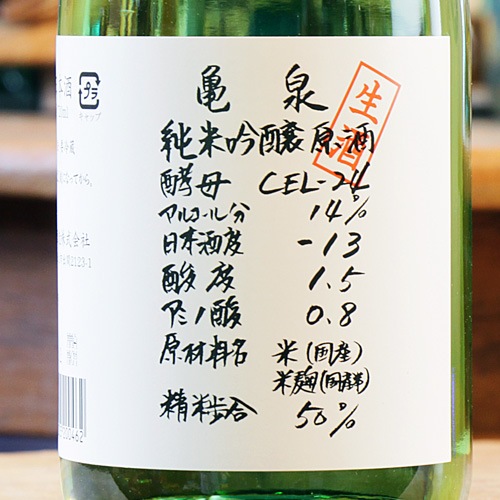 亀泉
生酒
純米吟醸原酒
酵母 CEL-24
アルコール分 14%
日本酒度 -13
酸度 1.5
アミノ酸 0.8
原材料名 米(国産)
米麹(国産米)
精米歩合 50%
本酒
プラ
キャップ
株式会社
2123-1